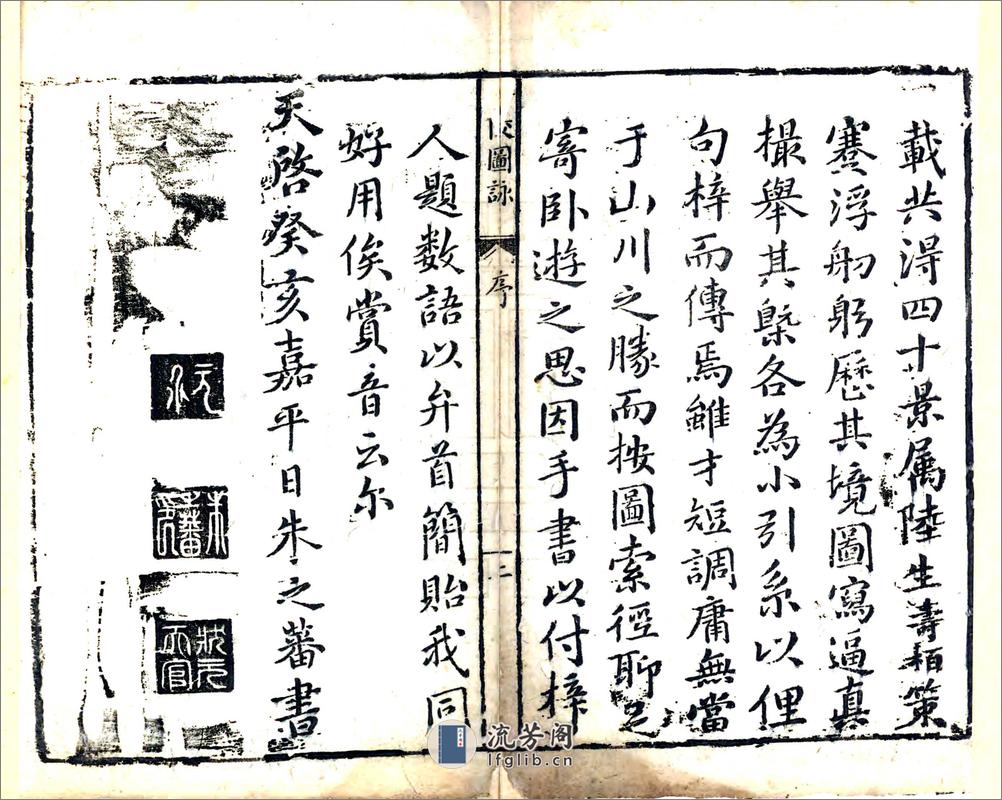 載共淂四十景属陸生濤栢策
蹇浮舠躬歷其境圖寫逼真
撮舉其槩各為小引系以俚
句梓而傳焉雖才短調庸無當
于山川之勝而按圖索徑聊足
寄卧遊之思因手書以付梓
人題数語以弁首簡貽我同
好用俟賞音云尔
天啓癸亥嘉平日朱之蕃書
圖詠
序
二
朱之蕃印
狀元
天官
流芳阁
lfglib.cn